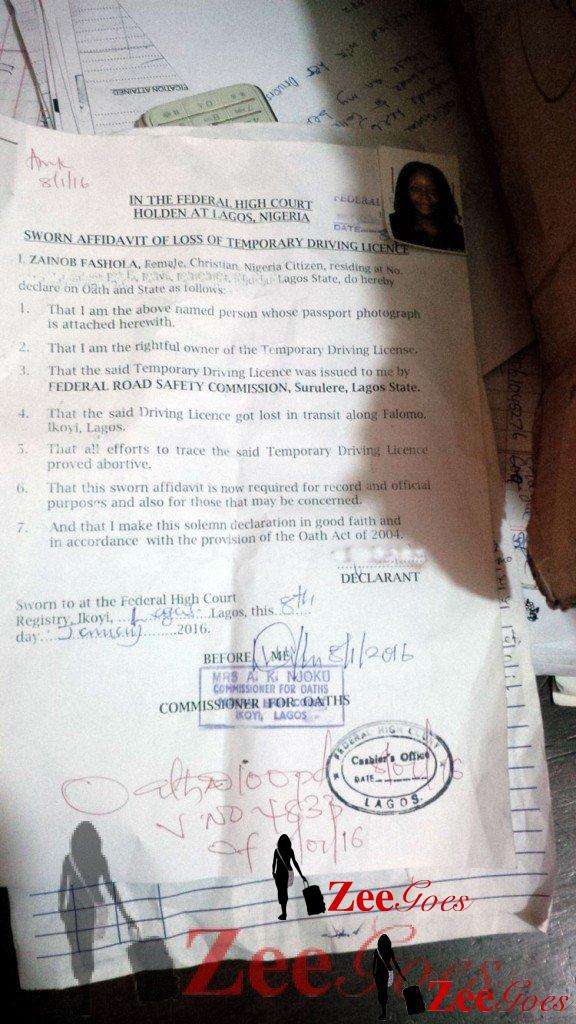 FICATION ATTAINED
8/1/16
FEDERAL
DATE
IN THE FEDERAL HIGH COURT
HOLDEN AT LAGOS, NIGERIA
SWORN AFFIDAVIT OF LOSS OF TEMPORARY DRIVING LICENCE
I, ZAINOB FASHOLA, Female, Christian, Nigeria Citizen, residing at No.
Lagos State, do hereby
declare on Oath and State as follows:
1. That I am the above named person whose passport photograph
is attached herewith.
2. That I am the rightful owner of the Temporary Driving License.
3. That the said Temporary Driving Licence was issued to me by
FEDERAL ROAD SAFETY COMMISSION, Surulere, Lagos State.
4. That the said Driving Licence got lost in transit along Falomo,
Ikoyi, Lagos.
5. That all efforts to trace the said Temporary Driving Licence
proved abortive.
6. That this sworn affidavit is now required for record and official
purposes and also for those that may be concerned.
7. And that I make this solemn declaration in good faith and
in accordance with the provision of the Oath Act of 2004.
DECLARANT
Sworn to at the Federal High Court
Registry, Ikoyi, Lagos Lagos, this 8th
day January 2016.
BEFORE ME 8/1/2016
MRS A. K. NJOKU
COMMISSIONER FOR OATHS
COMMISSIONER FOR OATHS
IKOYI, LAGOS
FEDERAL HIGH COURT
Cashier's Office
DATE
LAGOS
V NO 4833
of /01/16
ZeeGoes
ZeeGoes
ZeeGoes